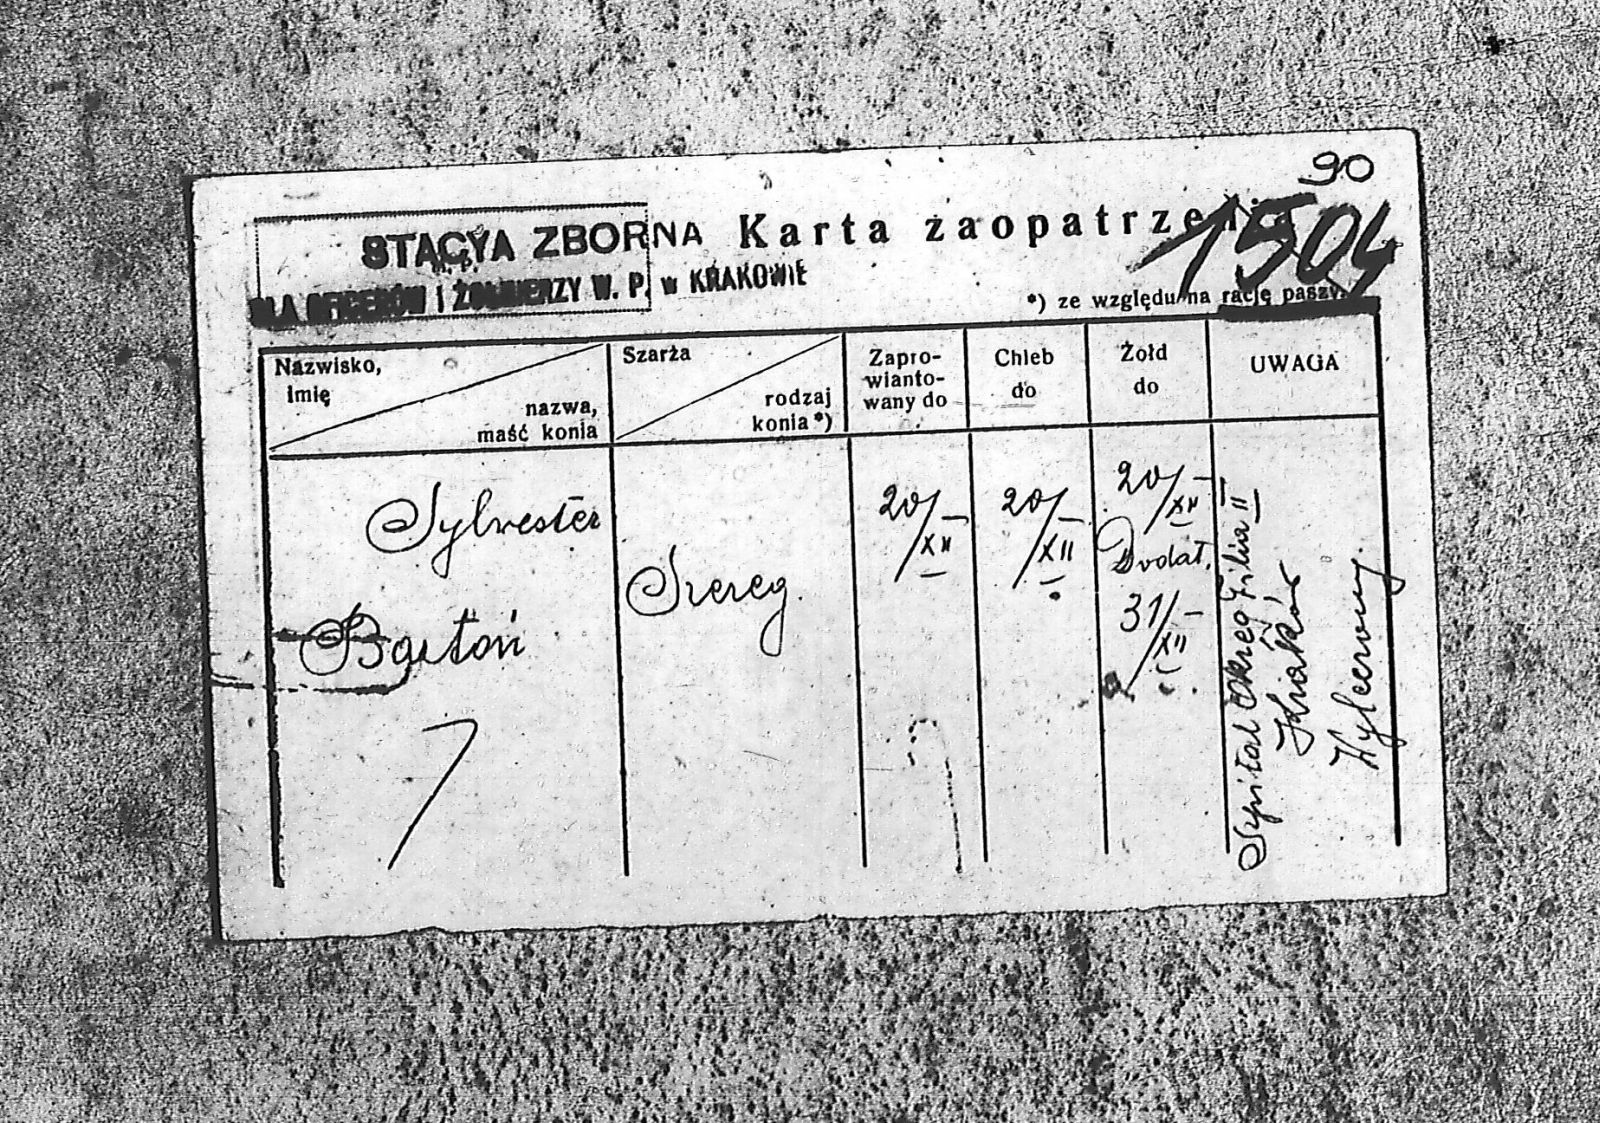 90
STACYA ZBORNA
DLA OFICERÓW i ŻOŁNIERZY W. P. w KRAKOWIE
Karta zaopatrzenia
1504
*) ze względu na rację paszy.
Nazwisko,
imię
nazwa,
maść konia
Szarża
rodzaj
konia *)
Zapro-
wianto-
wany do
Chleb
do
Żołd
do
UWAGA
Sylwester
Bartoń
Szereg.
20/XII
20/XII
20/XII
Dodat.
31/XII
Szpital Okręg Filia II
Kraków
Wyleczony